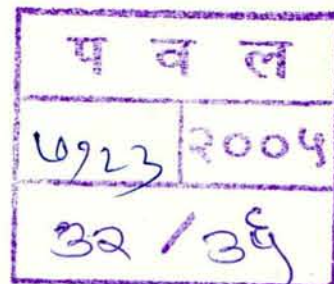 प व ल
७१२३ २००५
३२ / ३६